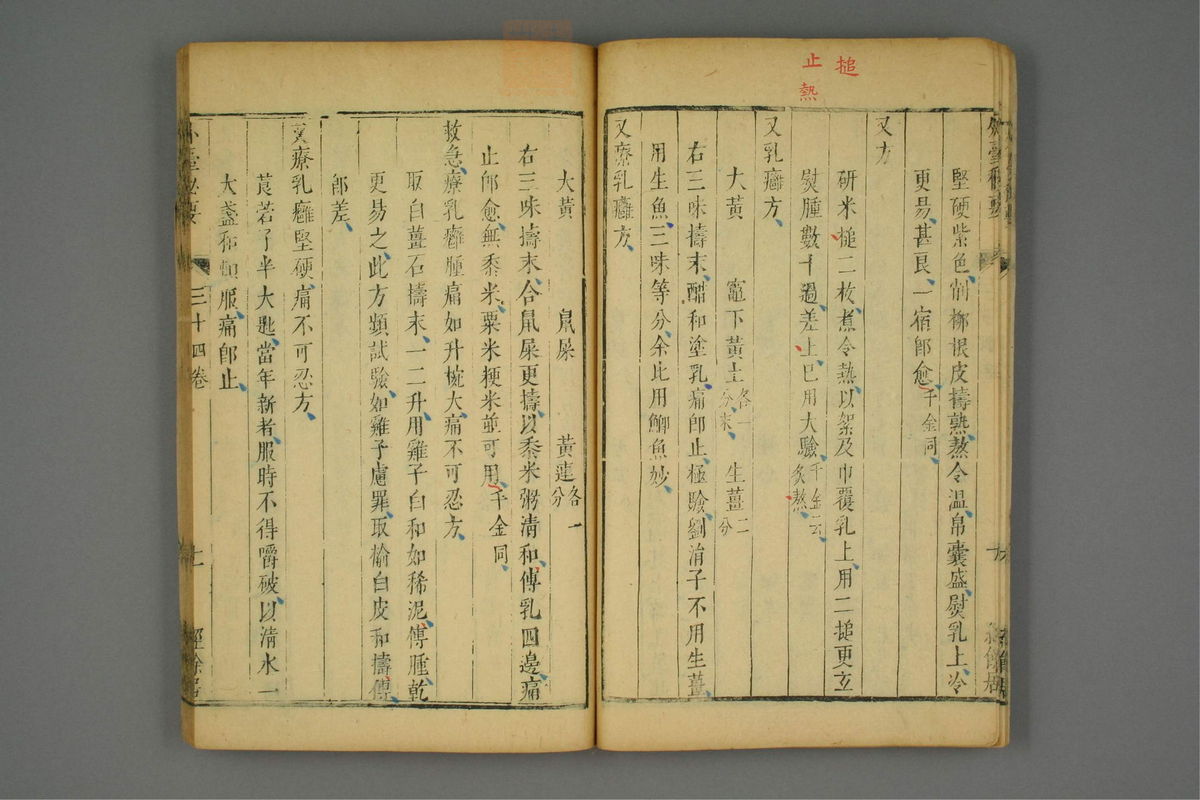 搥
止熱
堅硬紫色削柳根皮擣熟熬令温帛囊盛熨乳上冷
更易甚良一宿即愈千金同
又方
研米搥二枚煮令熱以絮及巾覆乳上用二搥更互
熨腫數十過差止巳用大驗千金云灸熬
又乳癰方
大黄 竈下黄土各一分末 生薑二分
右三味擣末醋和塗乳痛即止極驗劉涓子不用生薑
用生魚三味等分余比用鯽魚妙
又療乳癰方
大黄 鼠屎 黄連各一分
右三味擣末合鼠屎更擣以黍米粥清和傅乳四邊痛
止即愈無黍米粟米粳米並可用千金同
救急療乳癰腫痛如升椀大痛不可忍方
取白薑石擣末一二升用雞子白和如稀泥傅腫乾
更易之此方頻試驗如雞子慮罪取榆白皮和擣傅
即差
又療乳癰堅硬痛不可忍方
莨若子半大匙當年新者服時不得嚼破以清水一
大盞和頓服痛即止
外臺秘要 三十四卷 七 經餘居